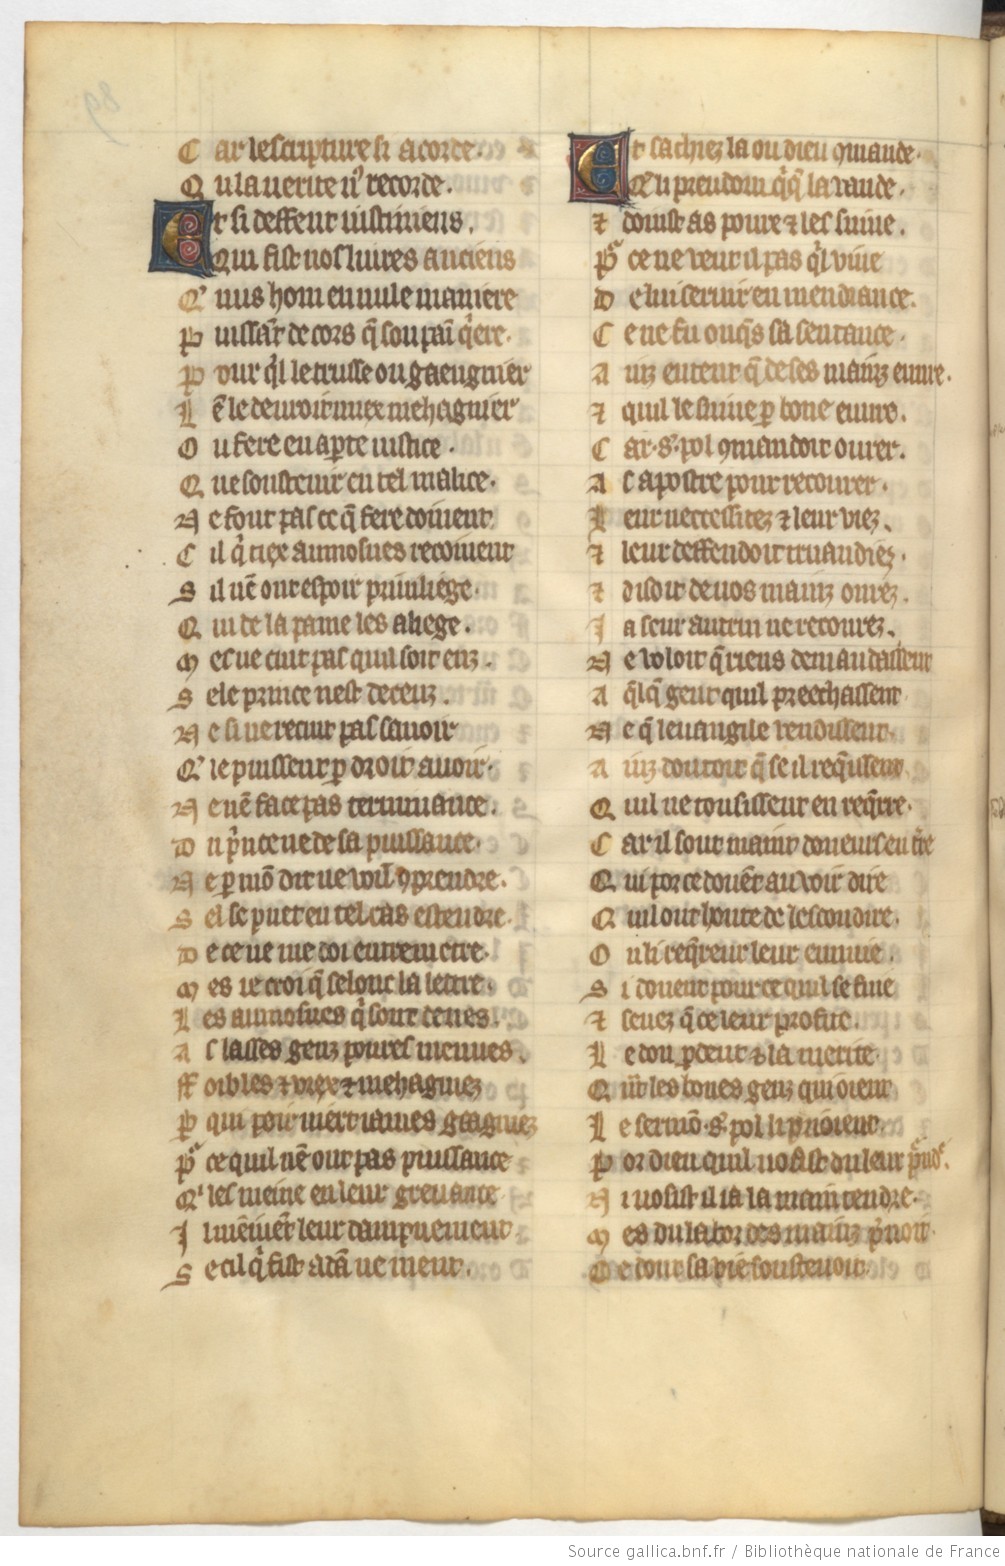 Car lescripture si acorde.
Qui la verite nꝰ recorde.
Et si deffent iustiniens.
Qui fist nos liures anciens
Qꝰ nus hom en nule maniere
Puissãt de cors q̃ son paĩ q̃ere.
Por q̃l le truisse ou gaengnier
Lẽ le deuroit miex mehaignier
Ou fere en aꝑte iustice.
Que soustenir en tel malice.
Ne font pas ce q̃ fere doiuent
Cil q̃ tiex aumosnes recoiuent
Sil nẽ ont espoir priuilege.
Qui de la paine les aliege.
Mes ne cuit pas quil soit enz.
Se le prince nest deceuz.
Ne si ne recuit pas sauoir
Qꝰ le puissent ꝑ droit auoir.
Ne nẽ face pas terminance.
Du p̃nce ne de sa puissance.
Ne ꝑ mõ dit ne voil ꝯprendre.
Sel se puet en tel cas estendre.
De ce ne me doi entremetre.
Mes ie croi q̃ selonc la lettre.
Les aumosnes q̃ sont deues.
As lasses genz poures menues.
Foibles ⁊ viex ⁊ mehaigniez
Par qui poīt niert iames gaaigniez
Pͬ ce quil nẽ ont pas puissance
Qꝰ les meine en leur greuance
Il mẽiuẽt leur dampnement.
Se cil q̃ fist adã ne ment.
Et sachiez la ou dieu ꝯmande.
Ce q̃ preudom q̃q̃ la vande.
⁊ doinst as poure ⁊ les suiue.
Pͬ ce ne veut il pas q̃l viue
De lui seruir en mendiance.
Ce ne fu onq̃s sa sentance.
Ainz entent q̃ de ses mainz euure.
⁊ quil le suiue ꝑ bone euure.
Car .s. pol ꝯmandoit ourer.
As apostre pour recourer.
Leur neccessitez ⁊ leur viez.
⁊ leur deffendoit truandiez.
⁊ disoit de vos mainz ourez.
Ja seur autrui ne recourez.
Ne voloit q̃ riens demandassent
A q̃lq̃ gent quil preechassent
Ne q̃ leuangile vendissent.
Ainz doutoit q̃ se il req̃issent
Quil ne tousissent en req̃rre.
Car il sont maint doneurs en t̃re
Qui por ce donẽt au voir dire
Quil ont honte de lescondire.
Ou li req̃reur leur ennuie.
Si donent pour ce quil se fuie
⁊ sauez q̃ ce leur profite.
Le don ꝑdent ⁊ la merite.
Qñt les bones genz qui oient
Le sermõ .s. pol li prioient.
Por dieu quil vosist du leur pͬndͬ.
Ni vosist il ia la main tendre.
Mes du labor des mainz p̃noit
De dont sa vie soustenoit.